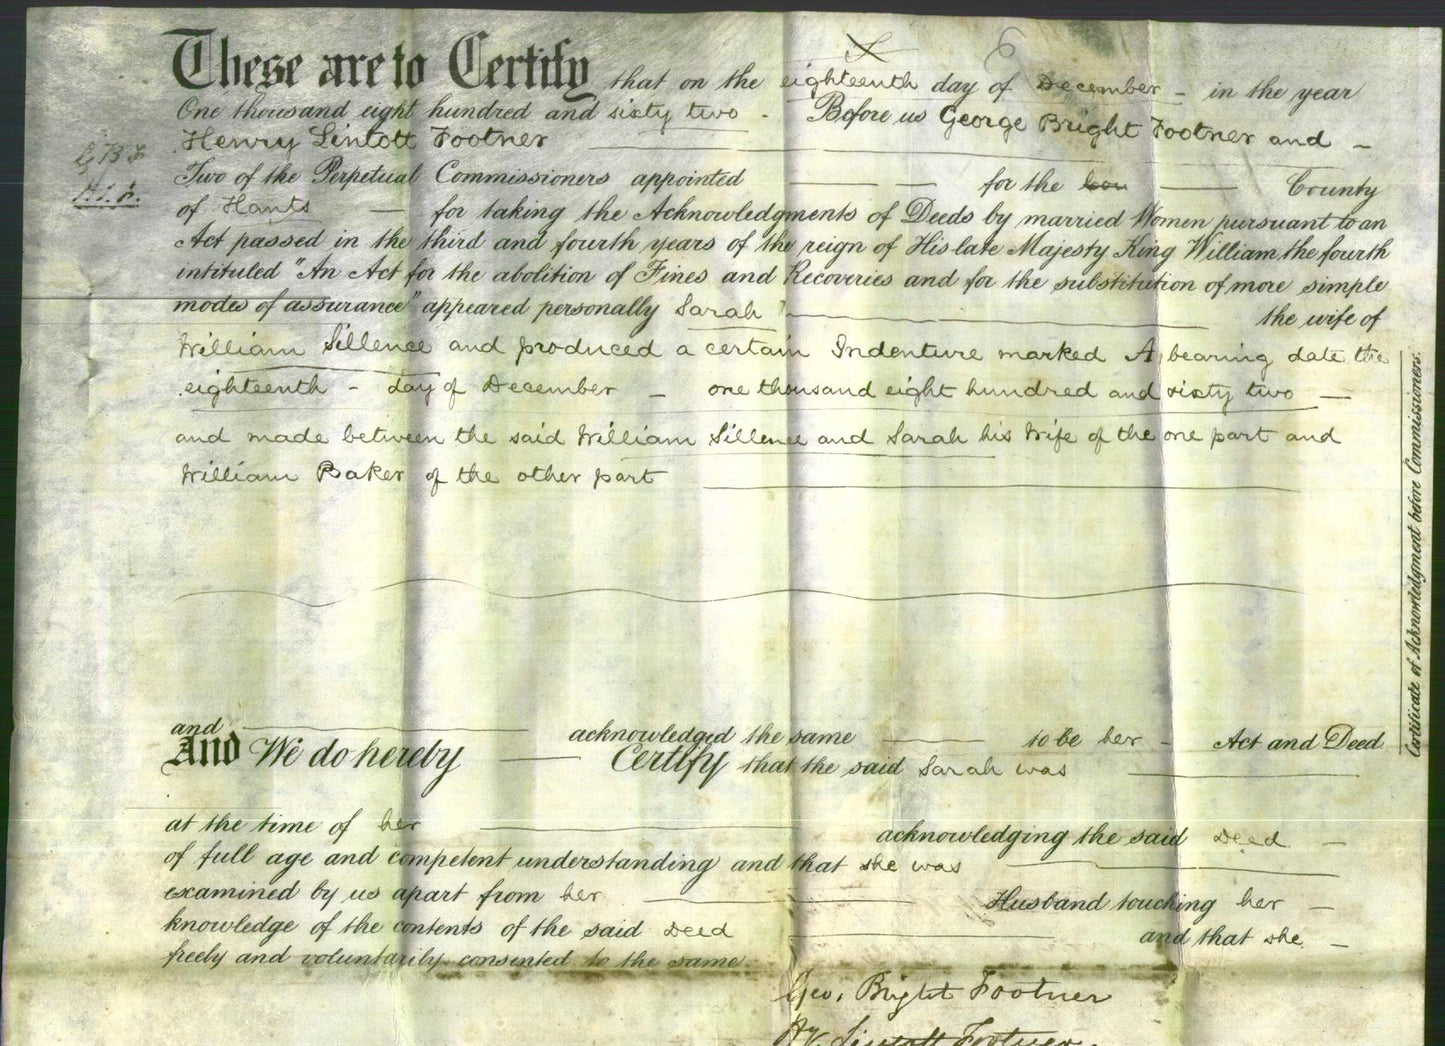 These are to Certify that on the eighteenth day of December - in the year
One thousand eight hundred and sixty two - Before us George Bright Footner and -
Henry Lintott Footner
GBF
Two of the Perpetual Commissioners appointed for the County
of Hants for taking the Acknowledgments of Deeds by married Women pursuant to an
Act passed in the third and fourth years of the reign of His late Majesty King William the fourth
intituled "An Act for the abolition of Fines and Recoveries and for the substitution of more simple
modes of assurance" appeared personally Sarah the wife of
William Sillence and produced a certain Indenture marked A bearing date the
eighteenth - day of December - one thousand eight hundred and sixty two -
and made between the said William Sillence and Sarah his Wife of the one part and
William Baker of the other part
and acknowledged the same to be her - Act and Deed
And We do hereby Certify that the said Sarah was
at the time of her acknowledging the said Deed -
of full age and competent understanding and that she was
examined by us apart from her Husband touching her -
knowledge of the contents of the said Deed and that she -
freely and voluntarily consented to the same
Geo. Bright Footner
Hy. Lintott Footner
Certificate of Acknowledgment before Commissioners.